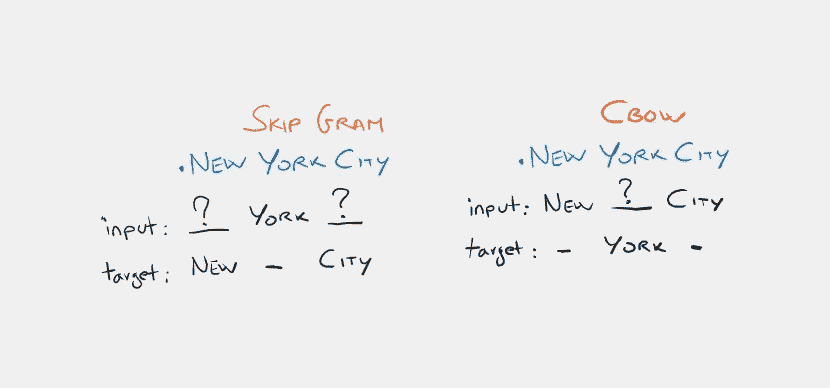 SKIP GRAM
.NEW YORK CITY
input: ? YORK ?
target: NEW - CITY
CBOW
.NEW YORK CITY
input: NEW ? CITY
target: - YORK -